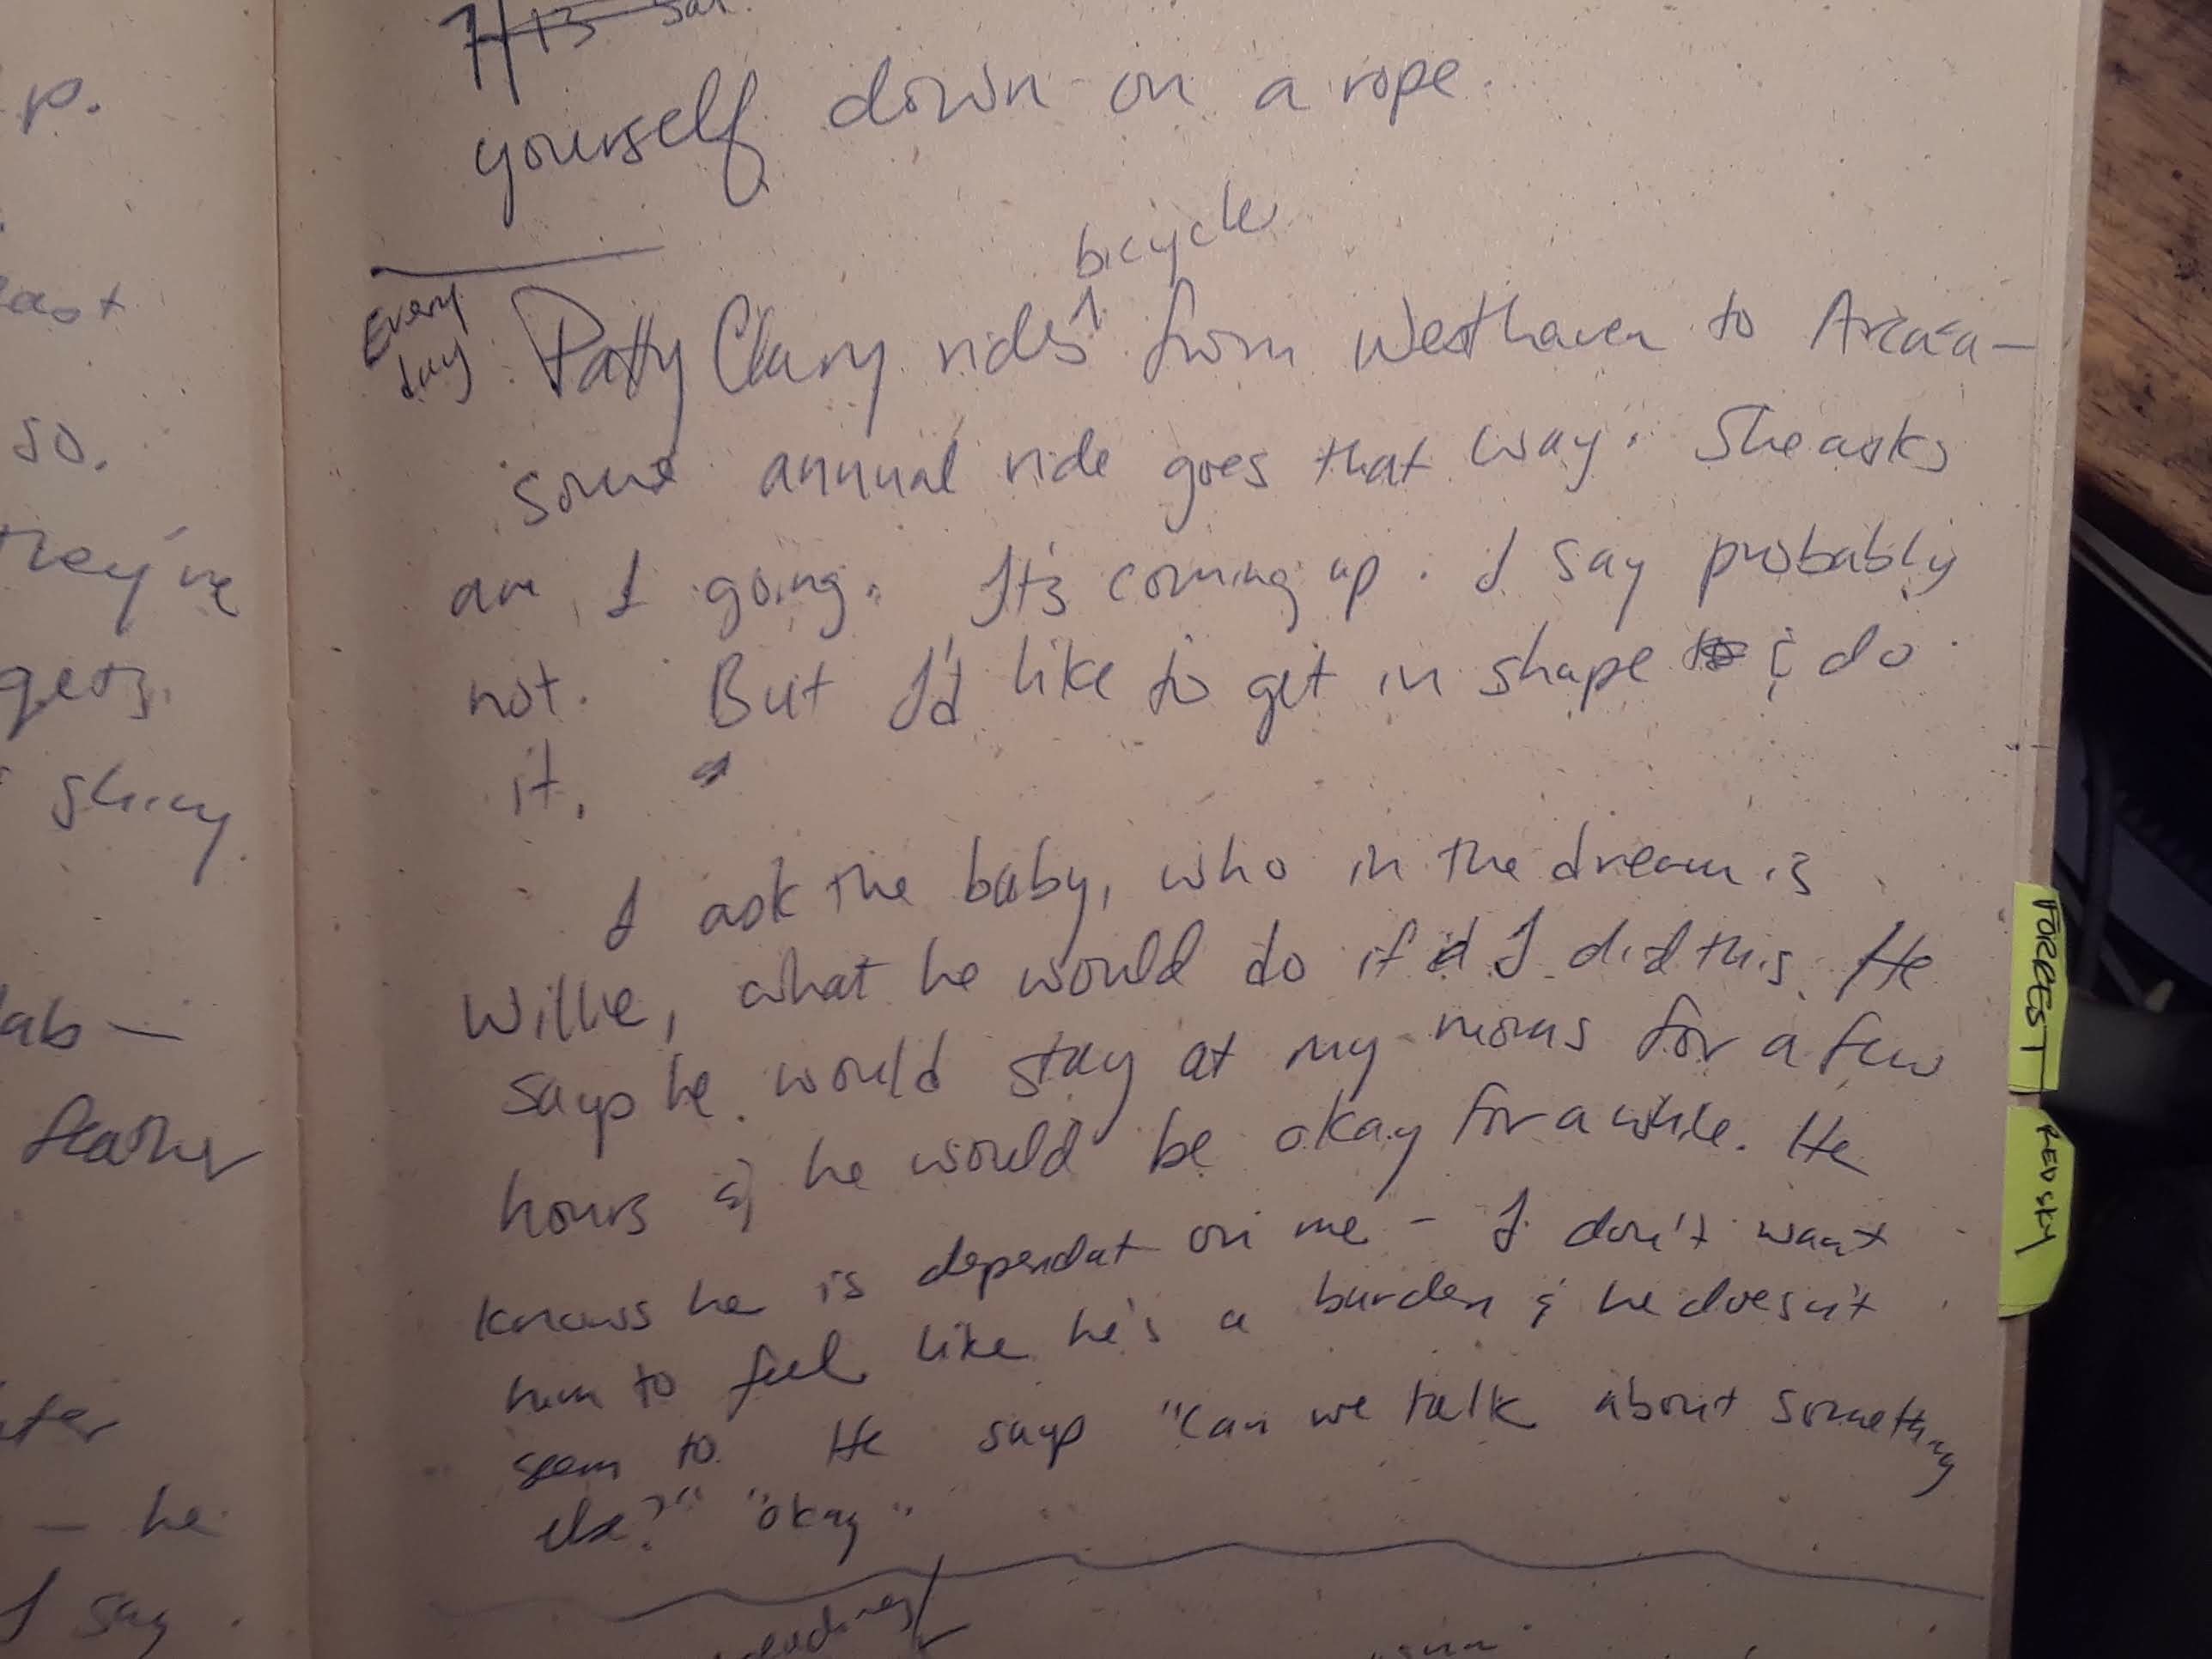 p.
east
so.
they're
gets
shiny
lab —
feather
— he
I say
7/13 Sat.
yourself down on a rope.
bicycle
Every
day
Patty Clary rides ^ from Westhaven to Arcata —
some annual ride goes that way. She asks
am I going. It's coming up. I say probably
not. But I'd like to get in shape & do
it.
I ask the baby, who in the dream is
Willie, what he would do if I did this. He
says he would stay at my moms for a few
hours & he would be okay for a while. He
knows he is dependat on me – I don't want
him to feel like he's a burden & he doesn't
seem to. He says "Can we talk about something
else?" "okay"
FORREST
RED SKY